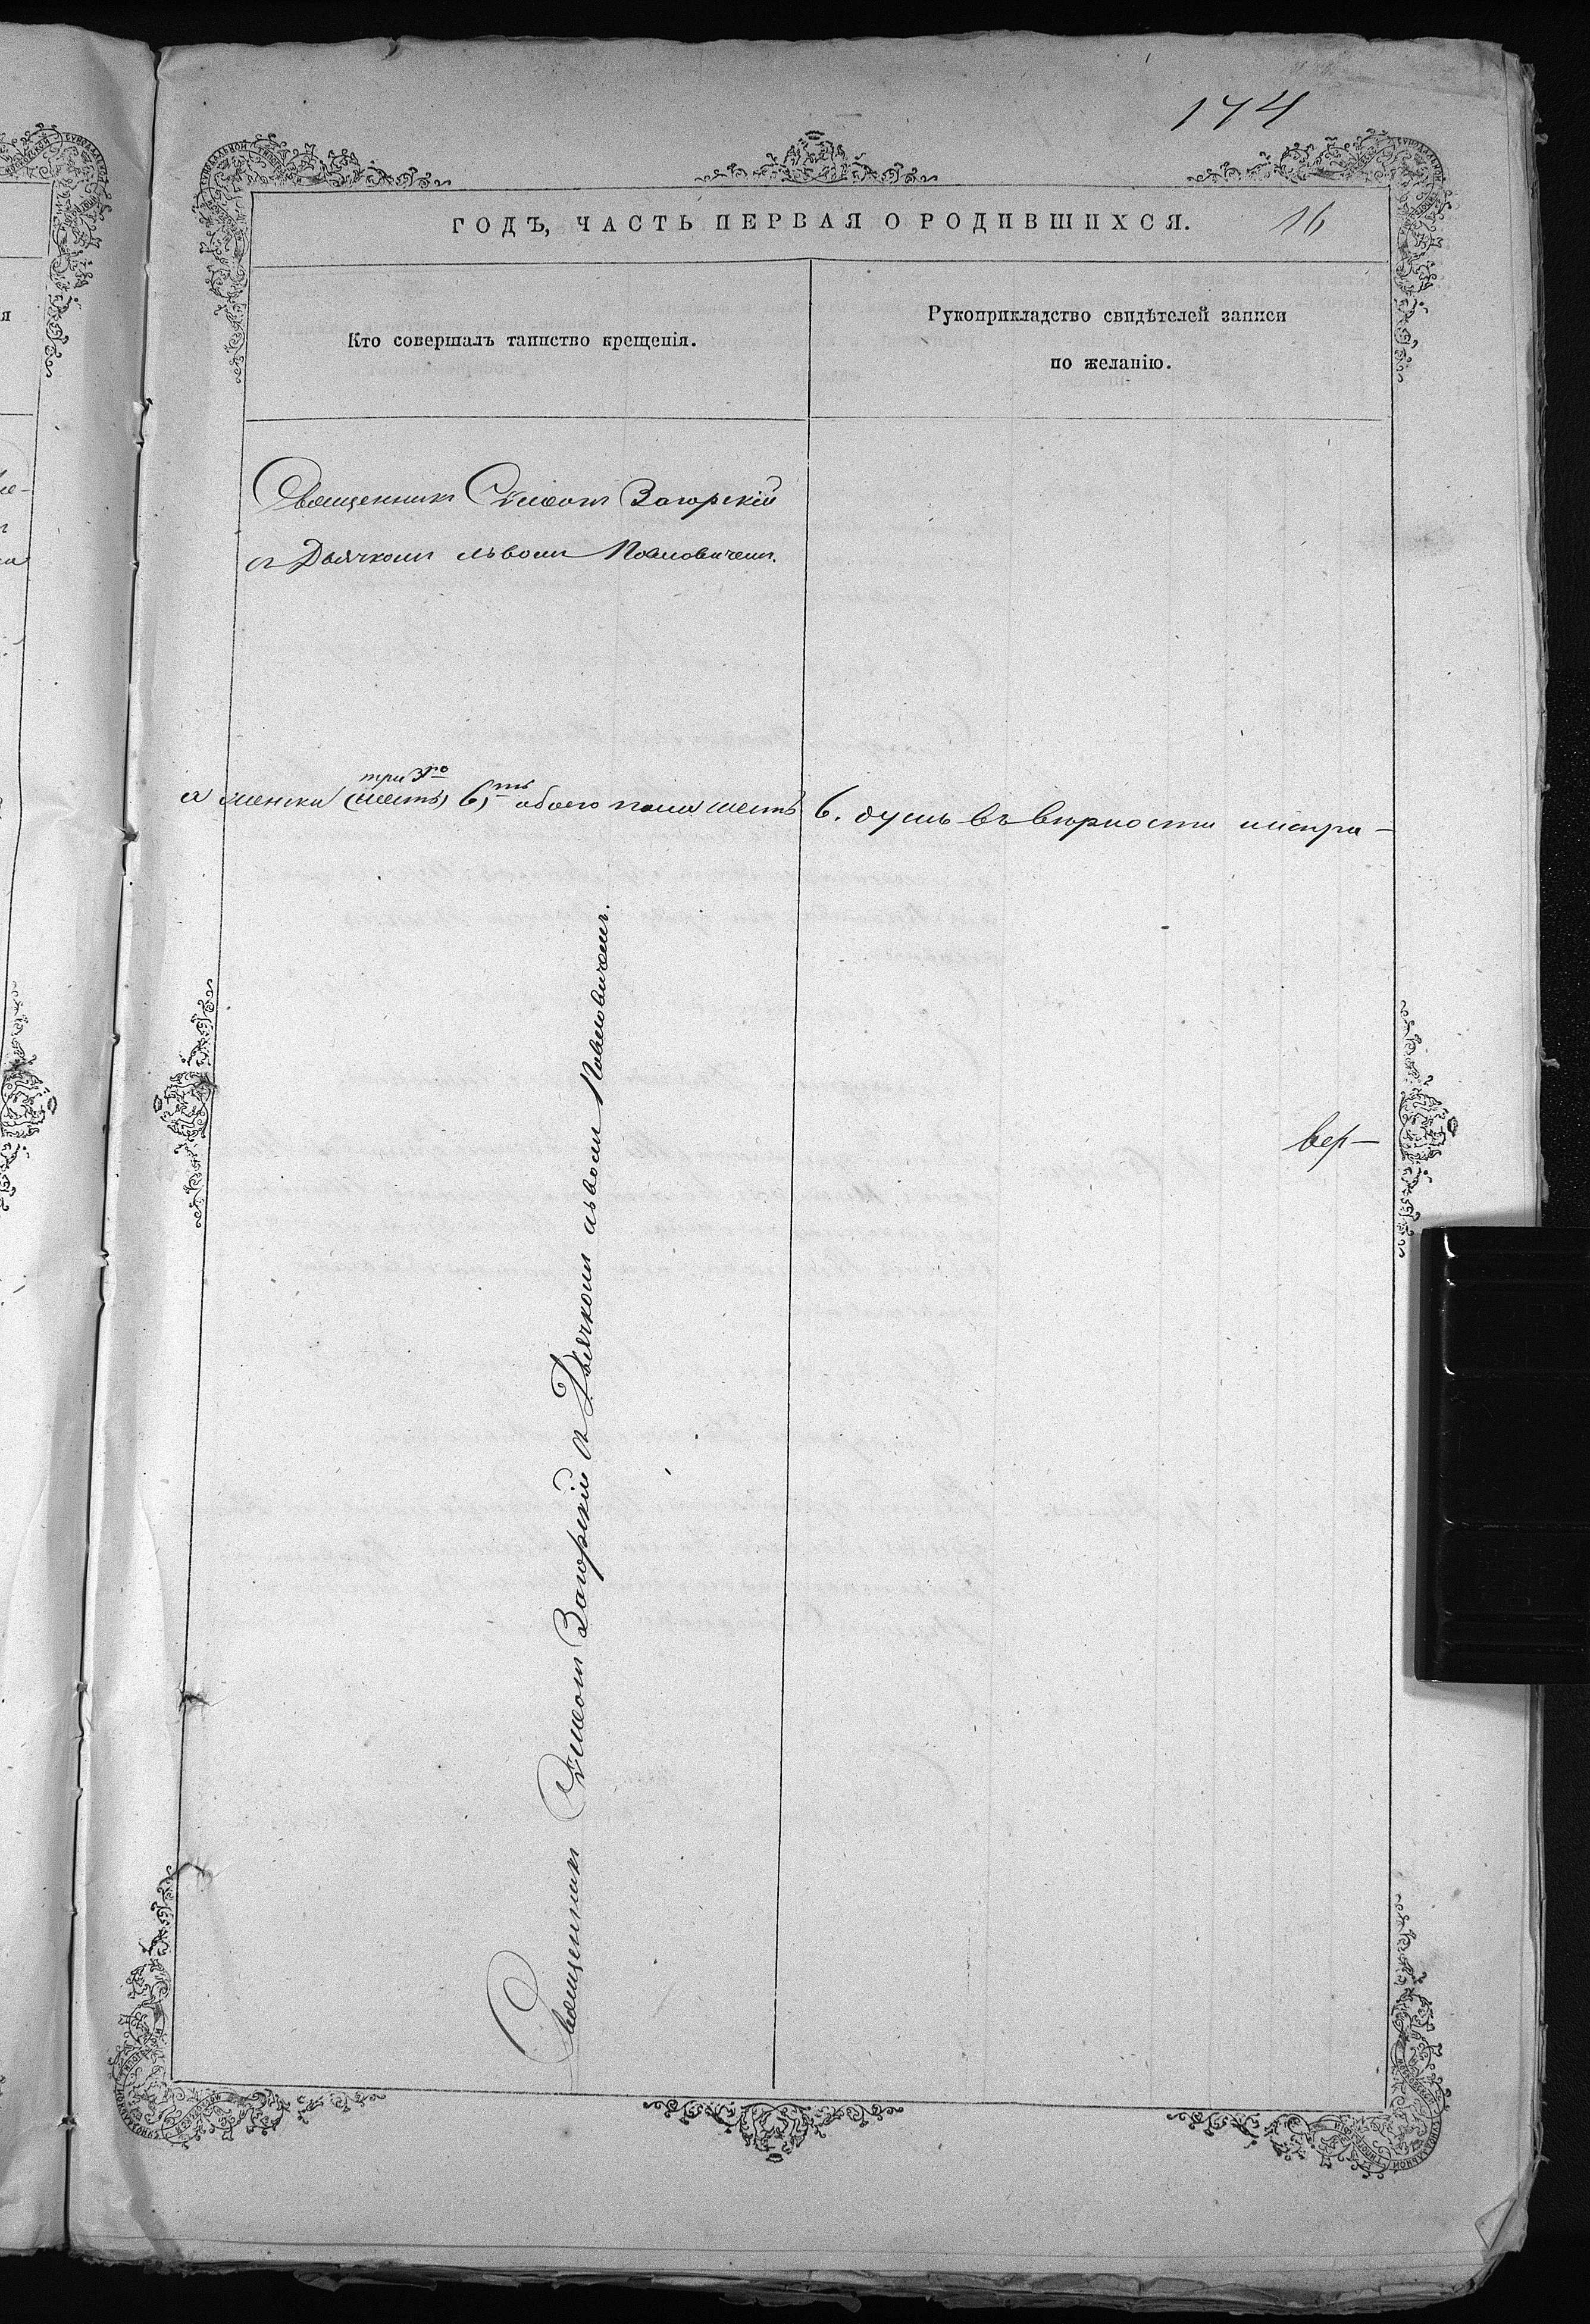 174
ГОДЪ, ЧАСТЬ ПЕРВАЯ О РОДИВШИХСЯ. 16
Кто совершалъ таинство крещенія.
Рукоприкладство свидѣтелей записи
по желанію.
Священникъ Сѵмеонъ Загорскій
съ Дьячкомъ Львомъ Павловичемъ.
три 3
а женска (шесть) 6, обоего пола шесть 6. душъ въ вѣрности
Священникъ Сѵмеонъ Загорскій съ Дьячкомъ Львомъ Павловичемъ.
вер-